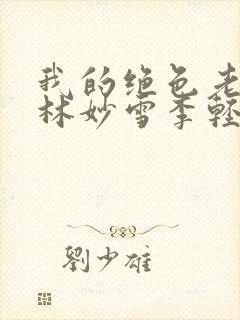 我的绝色老
林妙雪季轻
劉少雄